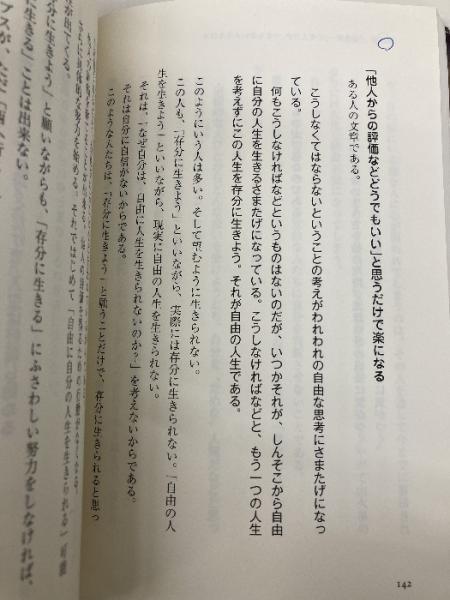 「他人からの評価などどうでもいい」と思うだけで楽になる
ある人の文章である。
こうしなくてはならないということの考えがわれわれの自由な思考にさまたげになっ
ている。
何もこうしなければなどというものはないのだが、いつかそれが、しんそこから自由
に自分の人生を生きるさまたげになっている。こうしなければなどと、もう一つの人生
を考えずにこの人生を存分に生きよう。それが自由の人生である。
このようにいう人は多い。そして望むように生きられない。
この人も、「存分に生きよう」といいながら、実際には存分に生きられない。「自由の人
生を生きよう」といいながら、現実に自由の人生を生きられない。
それは、「なぜ自分は、自由に人生を生きられないのか？」を考えないからである。
それは自分に自信がないからである。
このような人たちは、「存分に生きよう」と願うことだけで、存分に生きられると思っ
それではじめて「自由に自分の人生を生きられる」可能
が出てくる。
存分に生きよう」と願いながらも、「存分に生きる」にふさわしい努力をしなければ、
に生きる」ことは出来ない。
142